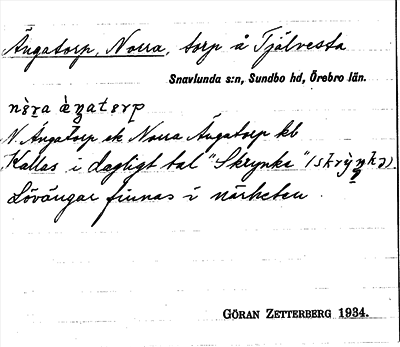 Ängatorp, Norra, torp å Tjälvesta
Snavlunda s:n, Sundbo hd, Örebro län.
N. Ängatorp ek Norra Ängatorp kb
Kallas i dagligt tal "Skrynka"
Lövängar finnas i närheten.
GÖRAN ZETTERBERG 1934.